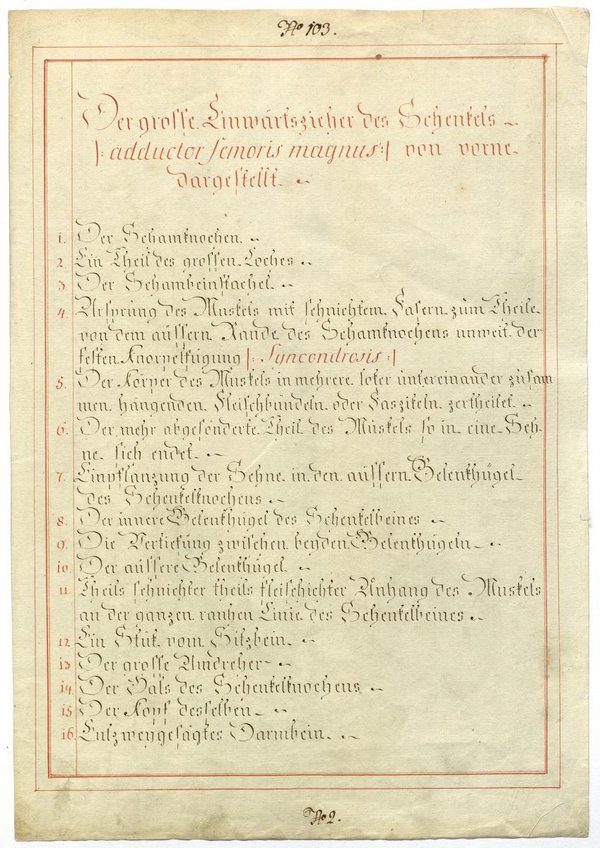 No 103.
Der grosse Einwärtszieher des Schenkels
|: adductor femoris magnus :| von vorne
dargestellt.
1. Der Schamknochen.
2. Ein Theil des grossen Loches
3. Der Schambeinstachel.
4. Ursprung des Muskels mit sehnichtem Fasern zum Theile
von dem äussern Rande des Schamknochens unweit der
festen Knorpelfügung |: Syncondrosis :|
5. Der Körper des Muskels in mehrere loker untereinander zusam
men hängenden Fleischbündeln oder Faszikeln zertheilet
6. Der mehr abgesonderte Theil des Muskels so in eine Seh-
ne sich endet
7. Einpflanzung der Sehne in den äussern Gelenkhügel
des Schenkelknochens
8. Der innere Gelenkhügel des Schenkelbeines
9. Die Vertiefung zwischen beyden Gelenkhügeln
10. Der äussere Gelenkhügel.
11. Theils sehnichter theils fleischichter Anhang des Muskels
an der ganzen rauhen Linie des Schenkelbeines
12. Ein Stük vom Sitzbein.
13. Der grosse Umdreher
14. Der Hals des Schenkelknochens
15. Der Kopf desselben
16. Entzweygesägtes Darmbein.
No 2.